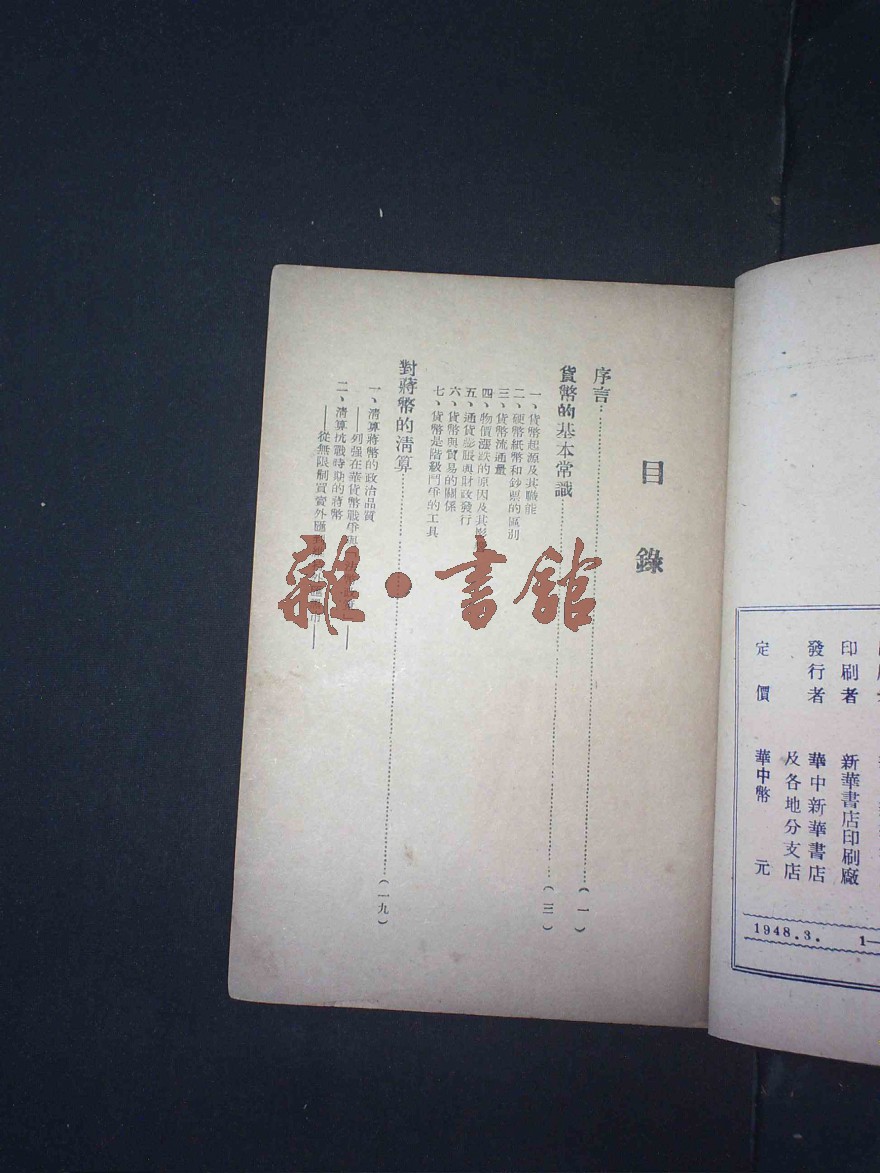 目錄
序言……(一)
貨幣的基本常識……(三)
一、貨幣起源及其職能
二、硬幣紙幣和鈔票的區別
三、貨幣流通量
四、物價漲跌的原因及其影
五、通貨膨脹與財政發行
六、貨幣與貿易的關係
七、貨幣是階級鬥爭的工具
對蔣幣的清算……(一九)
一、清算蔣幣的政治品質
——列强在華貨幣戰爭
二、清算抗戰時期的蔣幣
——從無限制買賣外匯
雜·書館
印刷者 新華書店印刷廠
發行者 華中新華書店
及各地分支店
定價 華中幣 元
1948.3. 1—